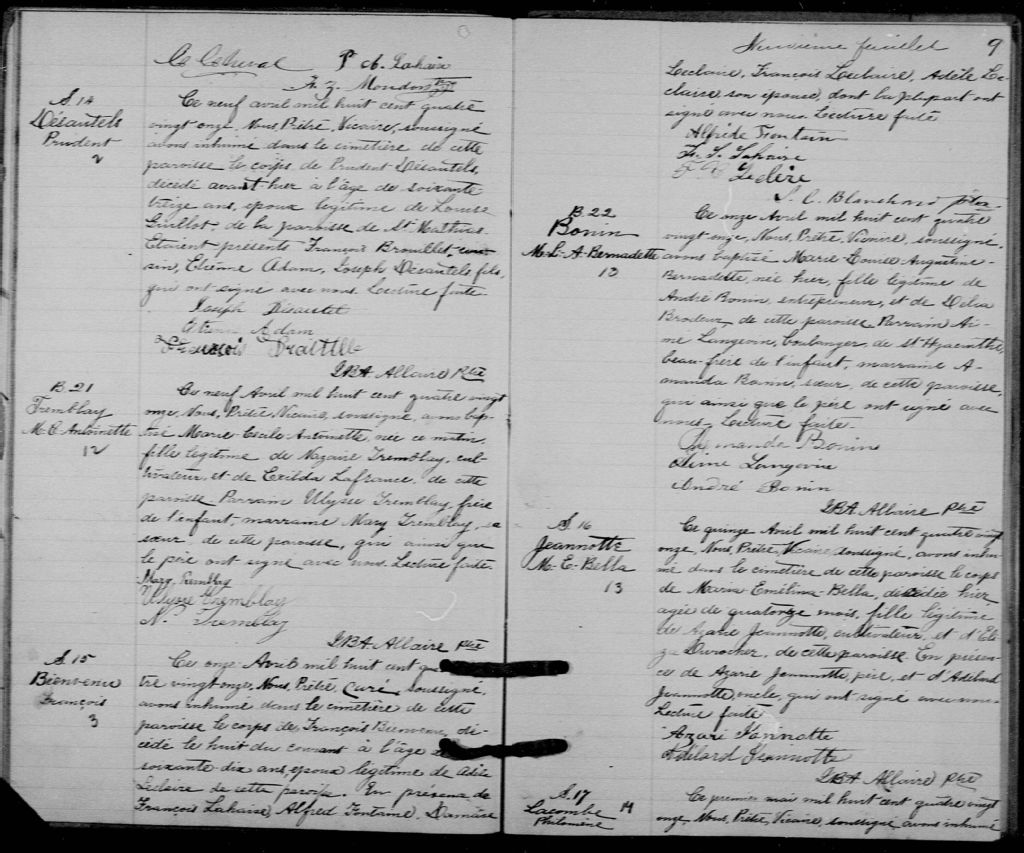 P. A. Lahaise
F. Z. Moudon Ptre
S. 14
Désautels
Prudent
2
Ce neuf avril mil huit cent quatre
vingt onze, Nous, Prêtre, Vicaire, soussigné
avons inhumé dans le cimetière de cette
paroisse le corps de Prudent Désautels,
décédé avant hier à l'âge de soixante
treize ans, époux légitime de Louise
Guillot, de la paroisse de St Mathias.
Etaient présents François Brouillet, cou-
sin, Etienne Adam, Joseph Désautels fils,
qui ont signé avec nous. Lecture faite
Joseph Désautels
Etienne Adam
François
JBA Allaire Ptre
B. 21
Tremblay
M. C. Antoinette
12
Ce neuf Avril mil huit cent quatre vingt
onze, Nous, Prêtre Vicaire, soussigné, avons bap-
tisé Marie Cécile Antoinette, née ce matin,
fille légitime de Nazaire Tremblay, cul-
tivateur, et de Exilda Lafrance, de cette
paroisse Parrain Ulysse Tremblay, frère
de l'enfant, marraine Mary Tremblay, sa
sœur de cette paroisse, qui ainsi que
le père ont signé avec nous. Lecture faite
Mary Tremblay
Ulysse Tremblay
N. Tremblay
JBA Allaire Ptre
S. 15
Bienvenue
François
3
Ce onze Avril mil huit cent qua
tre vingt onze, Nous, Prêtre, Curé, soussigné,
avons inhumé dans le cimetière de cette
paroisse le corps de François Bienvenu, dé-
cédé le huit du courant à l'âge de
soixante dix ans, époux légitime de Adèle
Leclaire de cette paroisse. En présence de
François Lahaise, Alfred Fontaine, Damase
Neuvième feuillet 9
Leclaire, François Leclaire, Adèle Le-
claire son épouse, dont la plupart ont
signé avec nous. Lecture faite
Alfred Fontain
Fr. S. Lahaise
Leclère
J. C. Blanchard ptre
B. 22
Bonin
M. L. A. Bernadette
13
Ce onze Avril mil huit cent quatre
vingt onze, Nous, Prêtre, Vicaire, soussigné,
avons baptisé Marie Louise Augustine-
Bernadette, née hier, fille légitime de
André Bonin, entrepreneur, et de Délia
Brodeur, de cette paroisse. Parrain Ai-
mé Langevin, boulanger, de St Hyacinthe,
beau-frère de l'enfant, marraine A-
manda Bonin, sœur, de cette paroisse,
qui ainsi que le père ont signé avec
nous. Lecture faite
Amanda Bonin
Aimé Langevin
André Bonin
JBA Allaire Ptre
S. 16
Jeannotte
M. E. Bella
13
Ce quinze Avril mil huit cent quatre vingt
onze, Nous, Prêtre, Vicaire, soussigné, avons inhu-
mé dans le cimetière de cette paroisse le corps
de Maria Emélina-Bella, décédée hier,
agée de quatorze mois, fille légitime
de Azarie Jeannotte, cultivateur, et d'Eli-
za Durocher, de cette paroisse. En présen-
ce de Azarie Jeannotte, père, et d'Adélard
Jeannotte, oncle, qui ont signé avec nous
Lecture faite
Azari Jannotte
Adélard Jeannotte
JBA Allaire Ptre
S. 17
Lacombe
Philomène
14
Ce premier mai mil huit cent quatre vingt
onze, Nous, Prêtre, Vicaire, soussigné avons inhumé